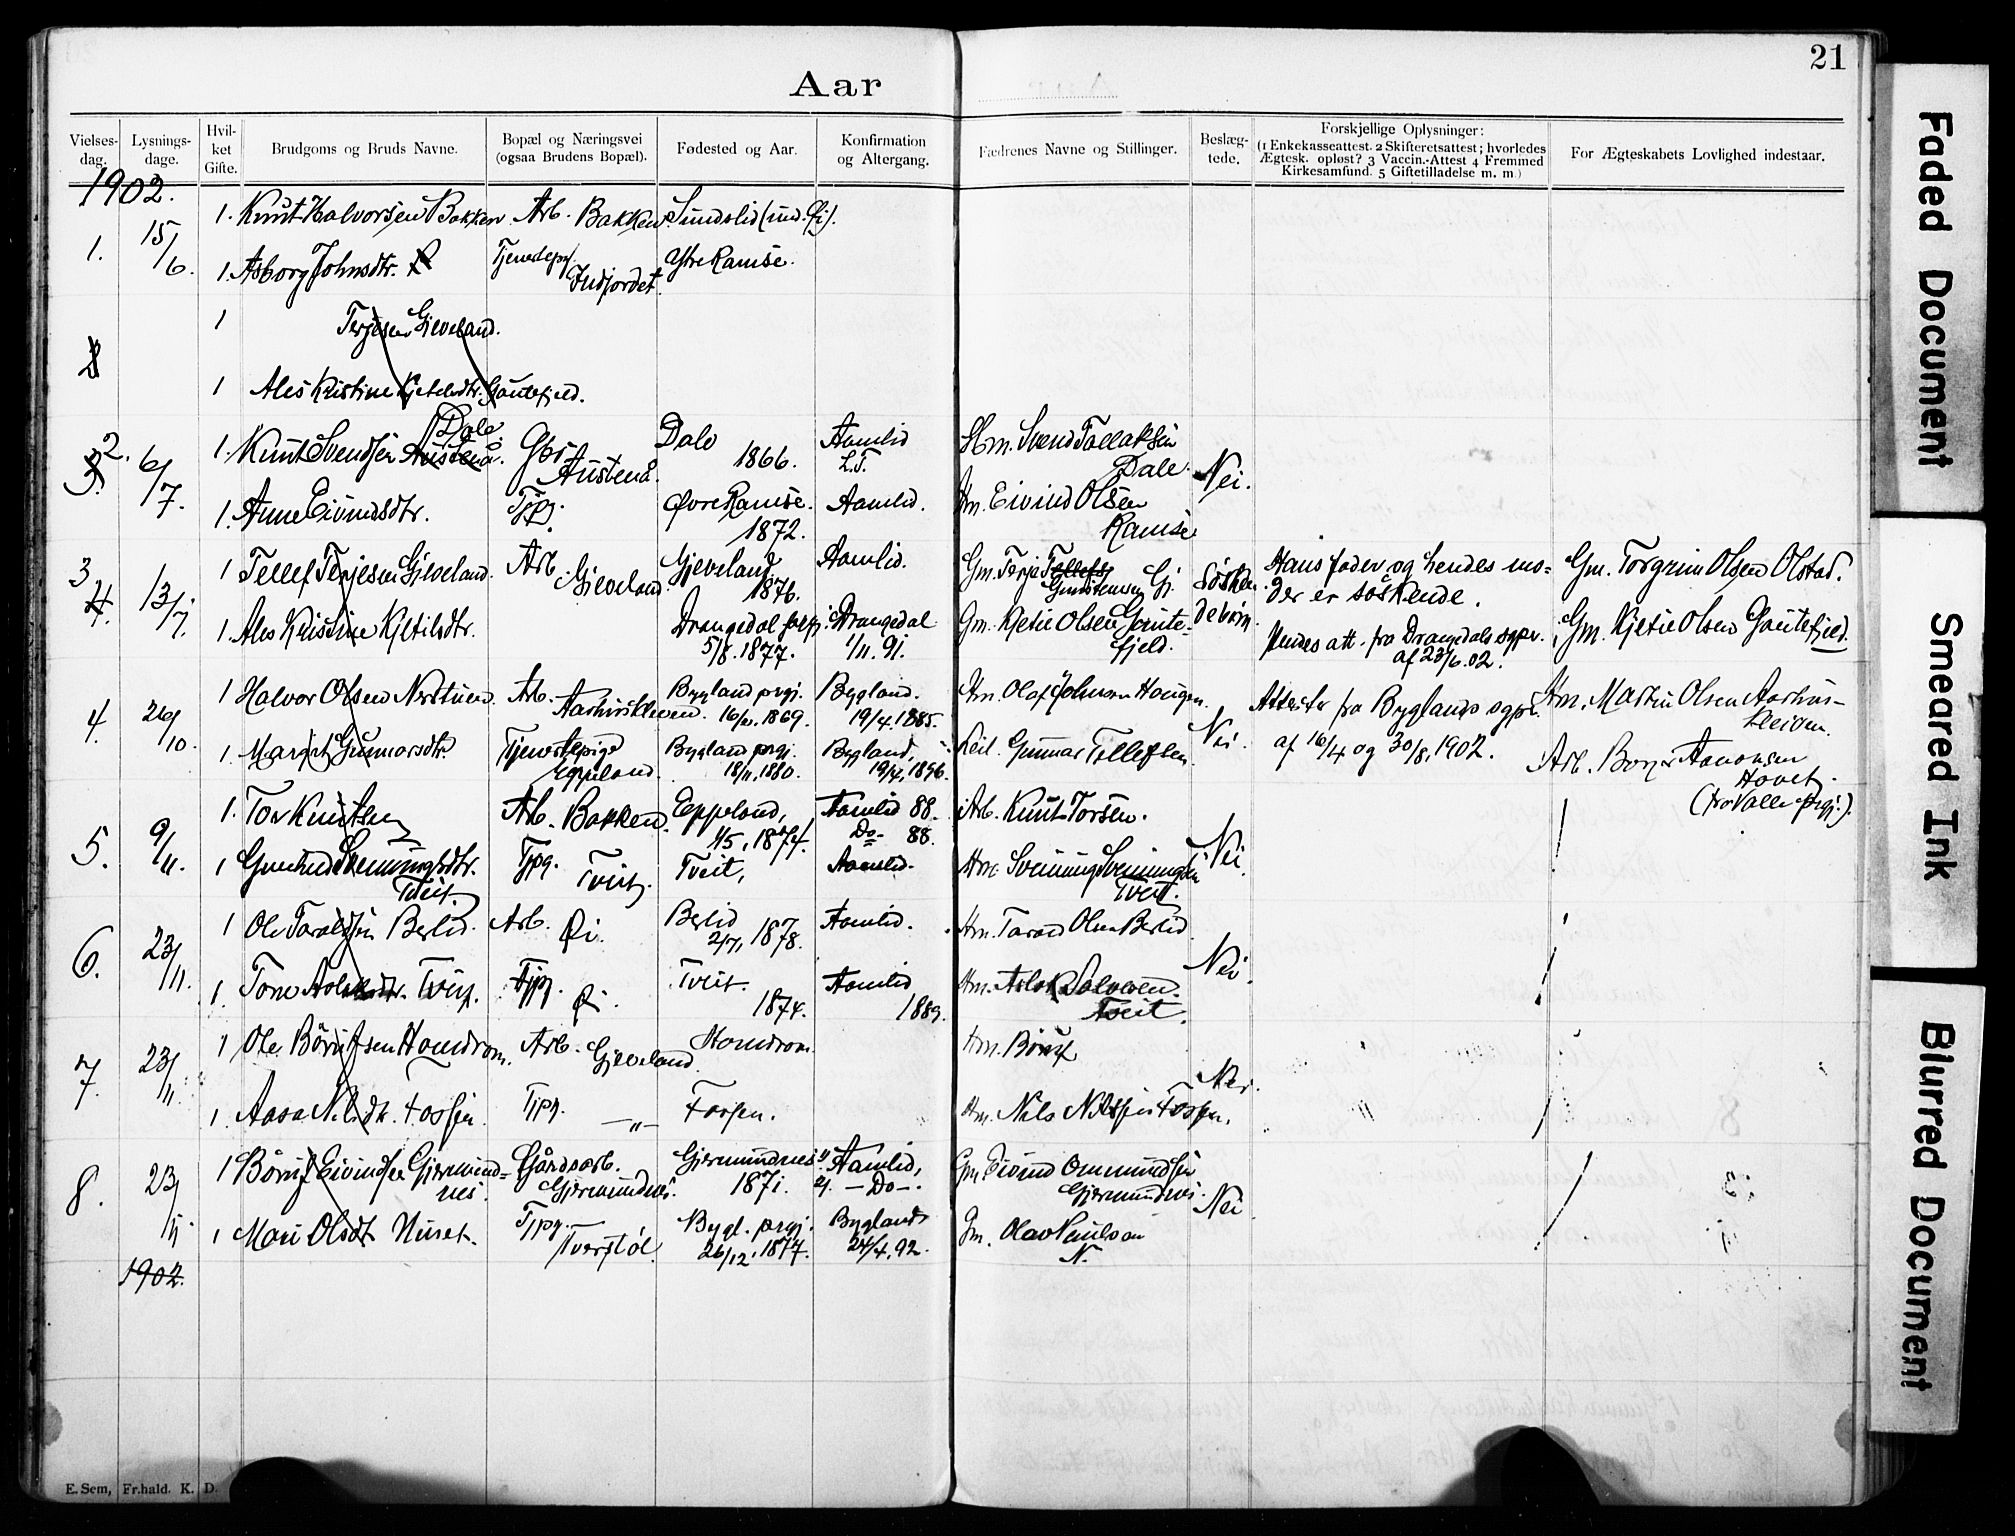 21
Aar
Vielses-
dag.
Lysnings-
dage.
Hvil-
ket
Gifte.
Brudgoms og Bruds Navne.
Bopæl og Næringsvei
(ogsaa Brudens Bopæl).
Fødested og Aar.
Konfirmation
og Altergang.
Fædrenes Navne og Stillinger.
Beslæg-
tede.
Forskjellige Oplysninger:
(1 Enkekasseattest. 2 Skifteretsattest; hvorledes
Ægtesk. opløst? 3 Vaccin.-Attest 4 Fremmed
Kirkesamfund. 5 Giftetilladelse m. m.)
For Ægteskabets Lovlighed indestaar.
1902.
1. 15/6. 1. Knut Halvorsen Bakken Arb. Bakken. Sundslid (und. Øi).
1. Asborg Johnsdtr. Tjenestepg. Indjordet. Ytre Ramse.
1 Terjesen Gjeveland.
1 Ales Kristine Kjetilsdtr. Gautefjeld.
Dale
2. 6/7. 1. Knut Svendsen Austenå. Gbr. Austenå. Dale 1866. Aamlid L.T. Hm. Svend Tallaksen Dale. Nei.
1. Anne Eivindsdtr. Tjp. Øvre Ramse. 1872. Aamlid. Hm. Eivind Olsen Ramse
3 4. 13/7. 1 Tellef Terjesen Gjeveland. Arb. Gjeveland. Gjeveland 1876. Aamlid. Gm. Terje Tellefs Gunstensen Gj. Søsken- Hans fader og hendes mo- Gm. Torgrim Olsen Olstad.
der er søskende.
1 Ales Kristine Kjetilsdtr. Drangedal prgj. 5/8. 1877. Drangedal 1/11. 91. Gm. Kjetil Olsen Gaute- fjeld. debørn. Hendes att. fra Drangedals sgpr. af 23/6.02. Gm. Kjetil Olsen Gautefjeld.
4. 26/10. 1 Halvor Olsen Nerstuen. Arb. Aarhuskleven. Bygland prgj. 16/11. 1869. Bygland. 19/4. 1885. Hm. Olaf Johnsen Haugen. Attester fra Byglands sgpr. Hm. Martin Olsen Aarhus-
kleven.
1. Margit Gunnarsdtr. Tjenestepige Eppeland. Bygland prgj. 18/11. 1880. Bygland, 19/4, 1896. Leil. Gunnar Tellefsen. Nei. af 16/4 og 30/8, 1902. Arb. Aanonsen
Hovet.
(fra Valle prgj.).
5. 9/11. 1. Tor Knutsen Arb. Bakken. Eppeland, 1/5, 1874. Aamlid 88. Do 88. Arb. Knut Torsen. Nei.
1 Gunhild Sveinungsdtr. Tveit. Tjpg. Tveit. Tveit, Aamlid. Hm. Sveinung Sveinungsen Tveit.
6. 23/11. 1 Ole Taraldsen Berlid. Arb. Øi. Berlid 2/7, 1878. Aamlid. Hm. Tarald Olsen Berlid. Nei.
1. Tone Aslaksdtr. Tveit. Tjpg. Øi. Tveit. 1874. Aamlid 1889. Hm. Aslak Salvesen. Tveit.
7. 23/11. 1 Ole Børufsen Homdrom. Arb. Gjeveland. Homdrom. Hm. Børuf Nei.
1. Aasa Nilsdtr. Fossen. Tjpg. — „ — Fossen. Hm. Nils Nilssen Fossen.
8. 23/11. 1 Børuf Eivindsen Gjermund-
nes. Gårdsarb. Gjermundnes. Gjermundnes 1871. Aamlid, — Do —. Gm. Eivind Ommundsen Gjermundnes. Nei
1 Mari Olsdt. Nuset. Tjpg. Tverstøl. Bygl. prgj. 26/12. 1877. Bygland 24/4. 92. Gm. Olav Paulson N.
1902.
E. Sem, Fr.hald. K. D.
Faded Document
Smeared Ink
Blurred Document